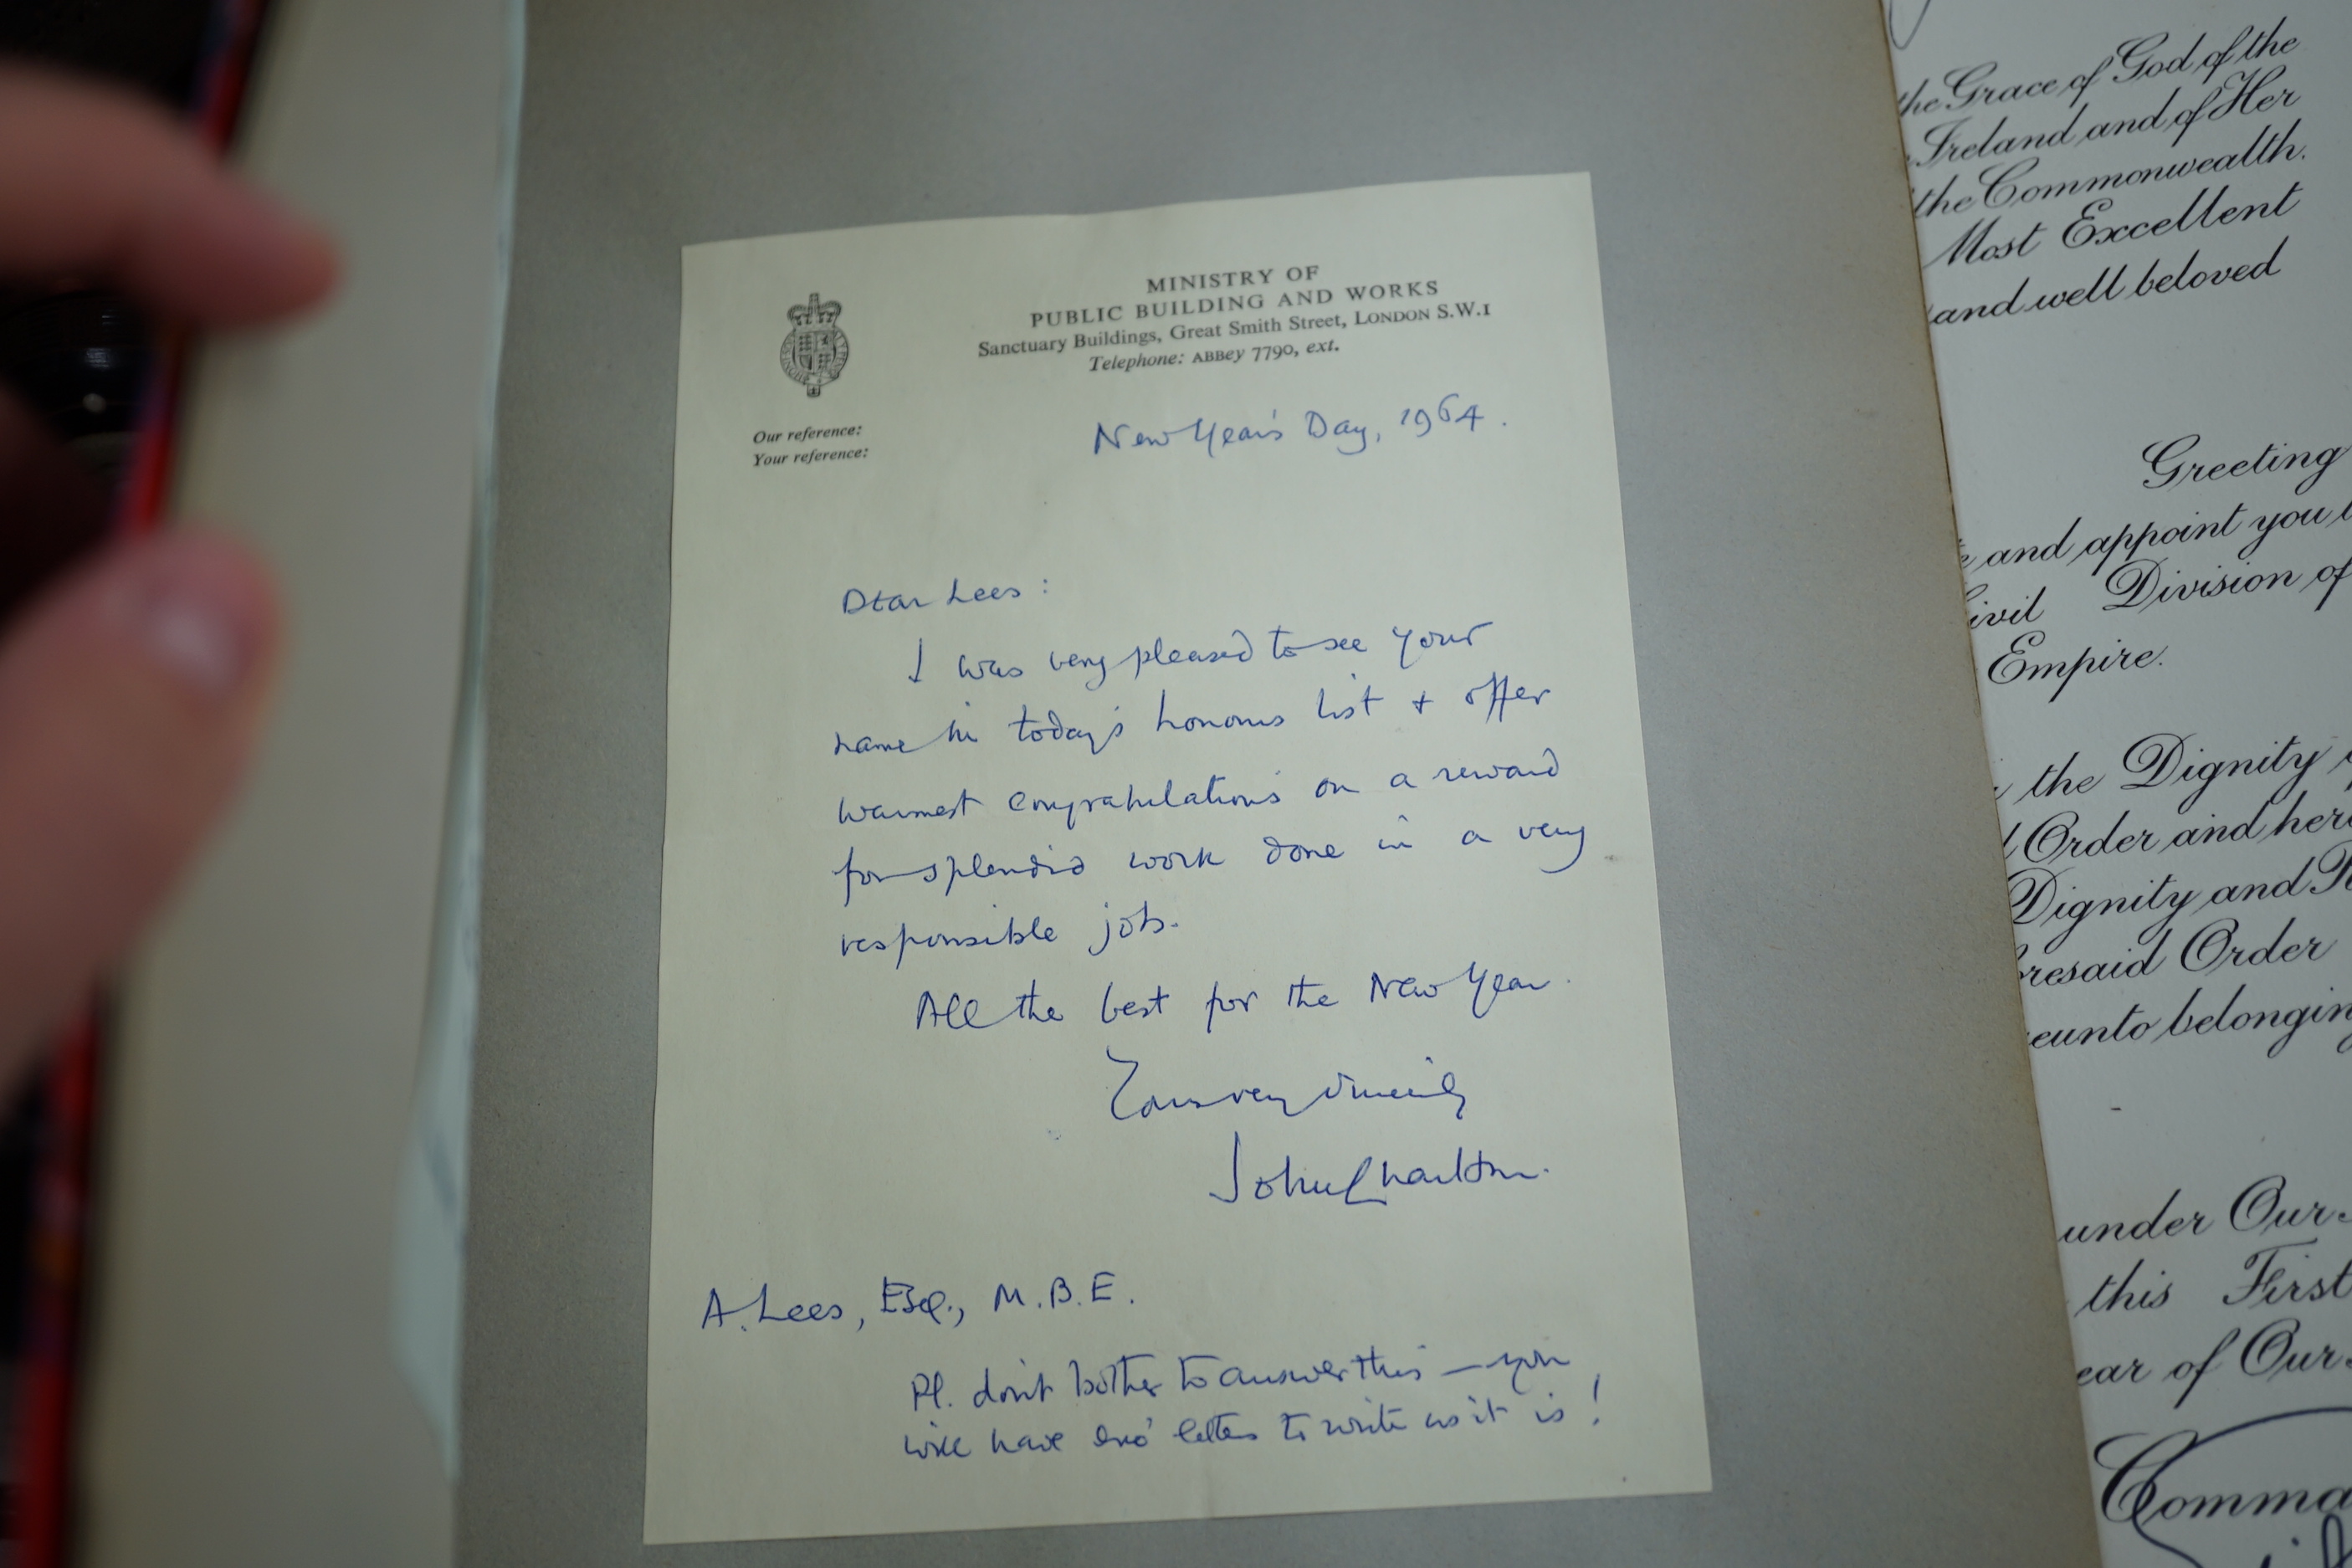 MINISTRY OF
PUBLIC BUILDING AND WORKS
Sanctuary Buildings, Great Smith Street, LONDON S.W.1
Telephone: ABBey 7790, ext.
Our reference:
Your reference:
New Year's Day, 1964.
Dear Lees:
I was very pleased to see your
name in today's honours list + offer
warmest congratulations on a reward
for splendid work done in a very
responsible job.
All the best for the New Year.
Yours very sincerely
John Charlton.
A. Lees, Esq., M.B.E.
Pl. don't bother to answer this — you
will have eno' letters to write as it is!
the Grace of God of the
Ireland and of Her
the Commonwealth.
Most Excellent
and well beloved
Greeting
and appoint you
Division of
Empire.
the Dignity
Order and
Dignity and
Order
under Our
this First
of Our